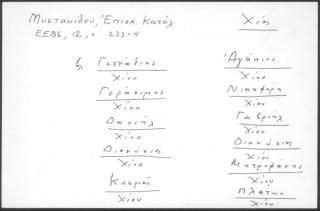 Μυστακίδου, Επισκ. Κατάλ.
Χίος
ΕΕΒΣ, 12, σ. 233-4
Γεννάδιος
Χίου
Γεράσιμος
Χίου
Δανιήλ
Χίου
Διονύσιος
Χίου
Κοσμᾶς
Χίου
Ἀγάπιος
Χίου
Νικηφόρος
Χίου
Γαβριήλ
Χίου
Διονύσιος
Χίου
Μητροφάνης
Χίου
Πλάτων
Χίου